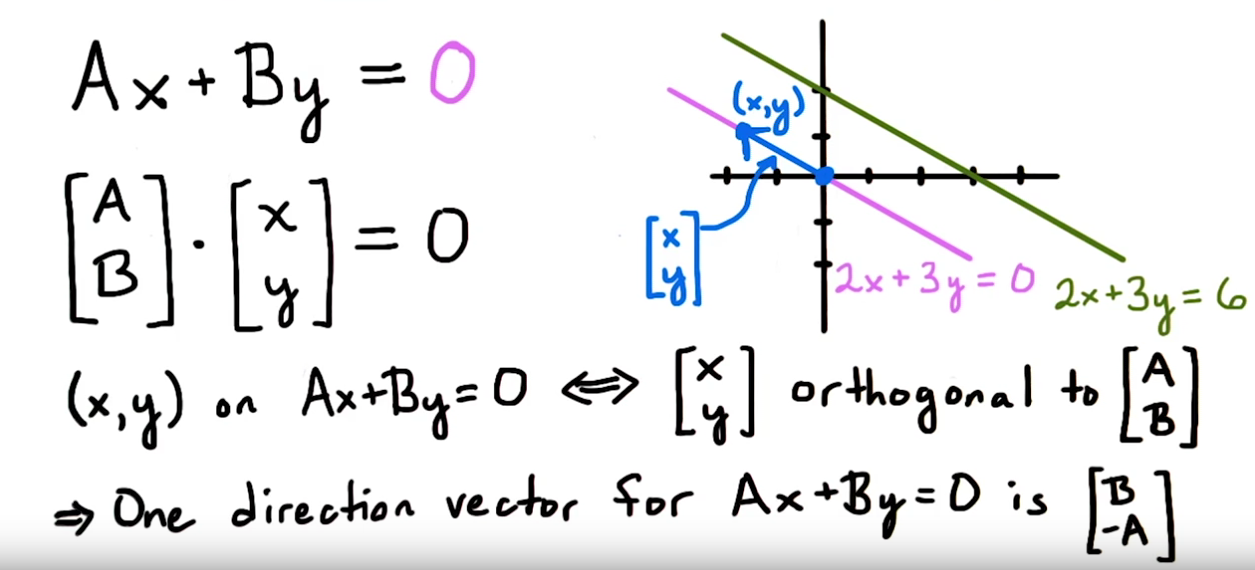 Ax + By = 0
[A B] · [x y] = 0
(x,y)
[x y]
2x + 3y = 0
2x + 3y = 6
(x,y) on Ax+By=0 ⟺ [x y] orthogonal to [A B]
⇒ One direction vector for Ax+By=0 is [B -A]